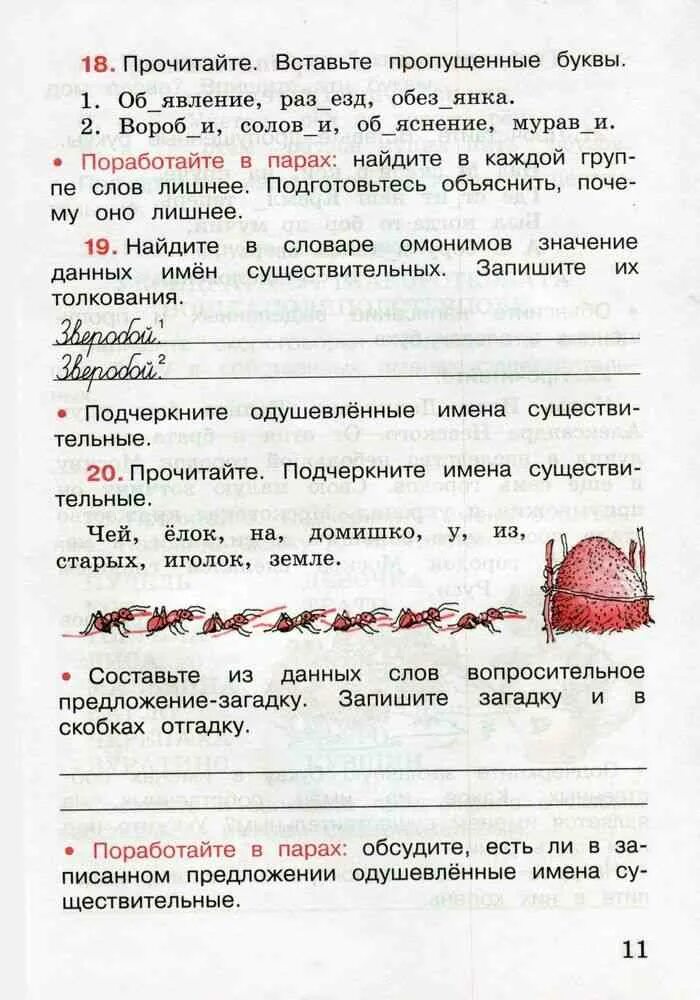 18. Прочитайте. Вставьте пропущенные буквы.
1. Об_явление, раз_езд, обез_янка.
2. Вороб_и, солов_и, об_яснение, мурав_и.
• Поработайте в парах: найдите в каждой груп-
пе слов лишнее. Подготовьтесь объяснить, поче-
му оно лишнее.
19. Найдите в словаре омонимов значение
данных имён существительных. Запишите их
толкования.
Зверобой.¹
Зверобой.²
• Подчеркните одушевлённые имена существи-
тельные.
20. Прочитайте. Подчеркните имена существи-
тельные.
Чей, ёлок, на, домишко, у, из,
старых, иголок, земле.
• Составьте из данных слов вопросительное
предложение-загадку. Запишите загадку и в
скобках отгадку.
• Поработайте в парах: обсудите, есть ли в за-
писанном предложении одушевлённые имена су-
ществительные.
11